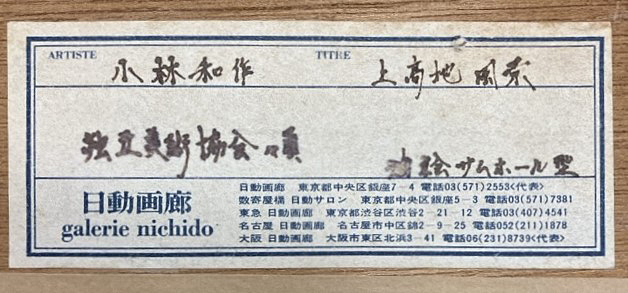 ARTISTE 小林和作 TITRE 上高地風景
独立美術協会々員
油絵サムホール型
日動画廊
galerie nichido
日動画廊 東京都中央区銀座7-4 電話03(571)2553<代表>
数寄屋橋 日動サロン 東京都中央区銀座5-3 電話03(571)7381
東急 日動画廊 東京都渋谷区渋谷2-21-12 電話03(407)4541
名古屋 日動画廊 名古屋市中区錦2-9-25 電話052(211)1878
大阪 日動画廊 大阪市東区北浜3-41 電話06(231)8739<代表>